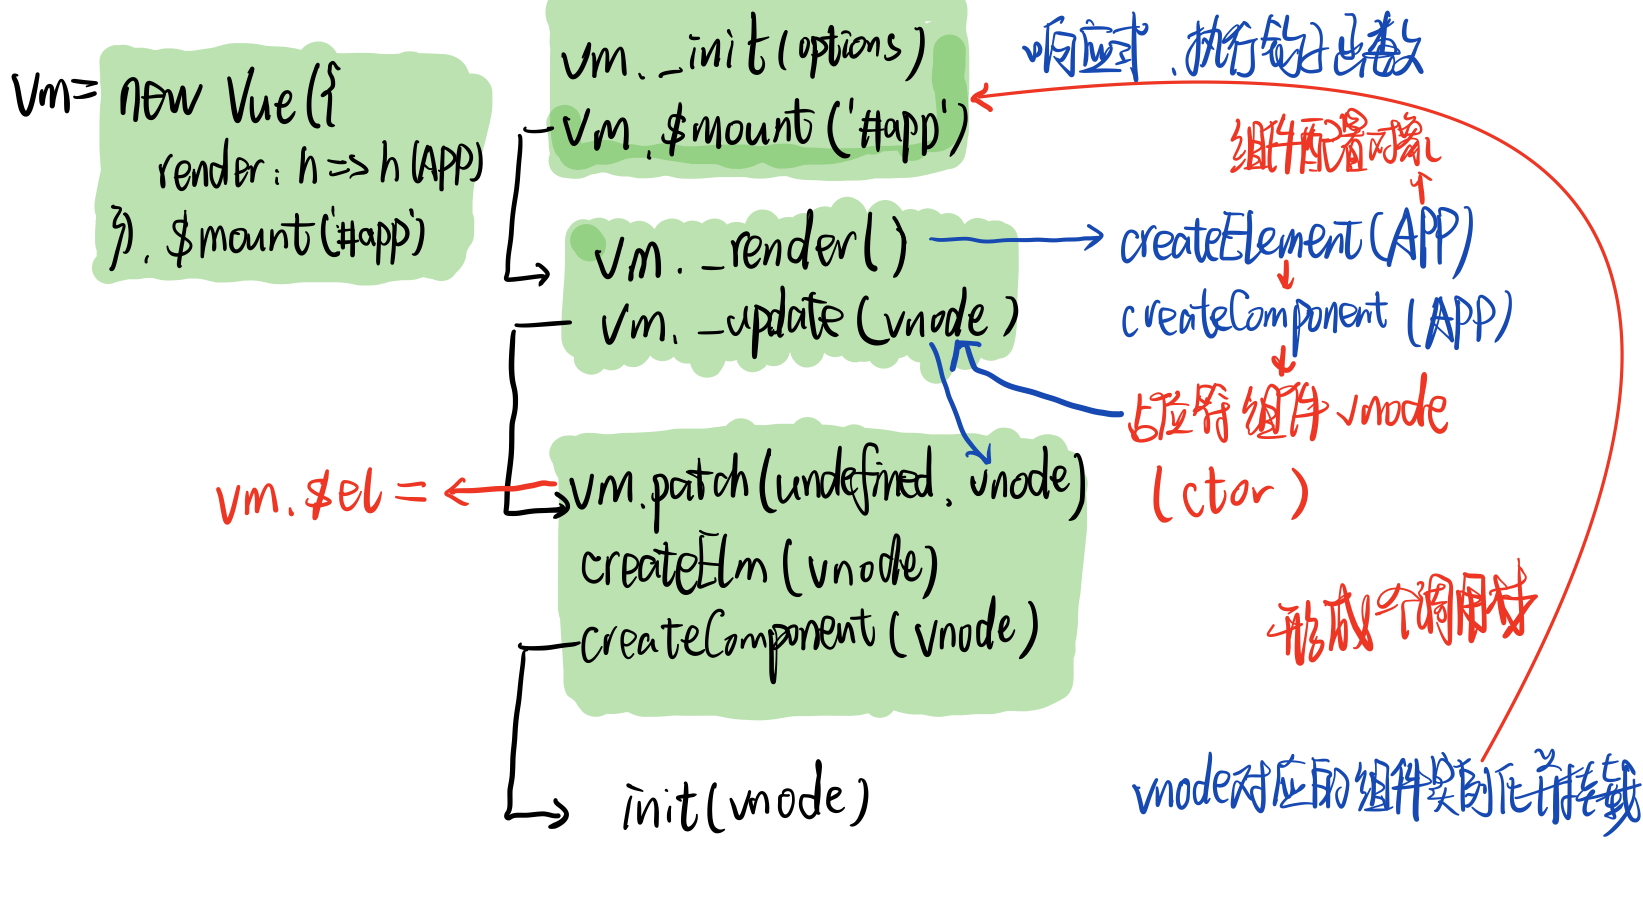 vm= new Vue({
render: h => h(APP)
}). $mount('#app')
vm._init(options)
vm.$mount('#app')
响应式、执行钩子函数
组件配置对象
vm._render()
createElement(APP)
vm._update(vnode)
createComponent(APP)
占位符组件vnode
(ctor)
vm.$el =
vm.patch(undefined, vnode)
createElm(vnode)
createComponent(vnode)
形成一个调用栈
init(vnode)
vnode对应的组件实例化并挂载